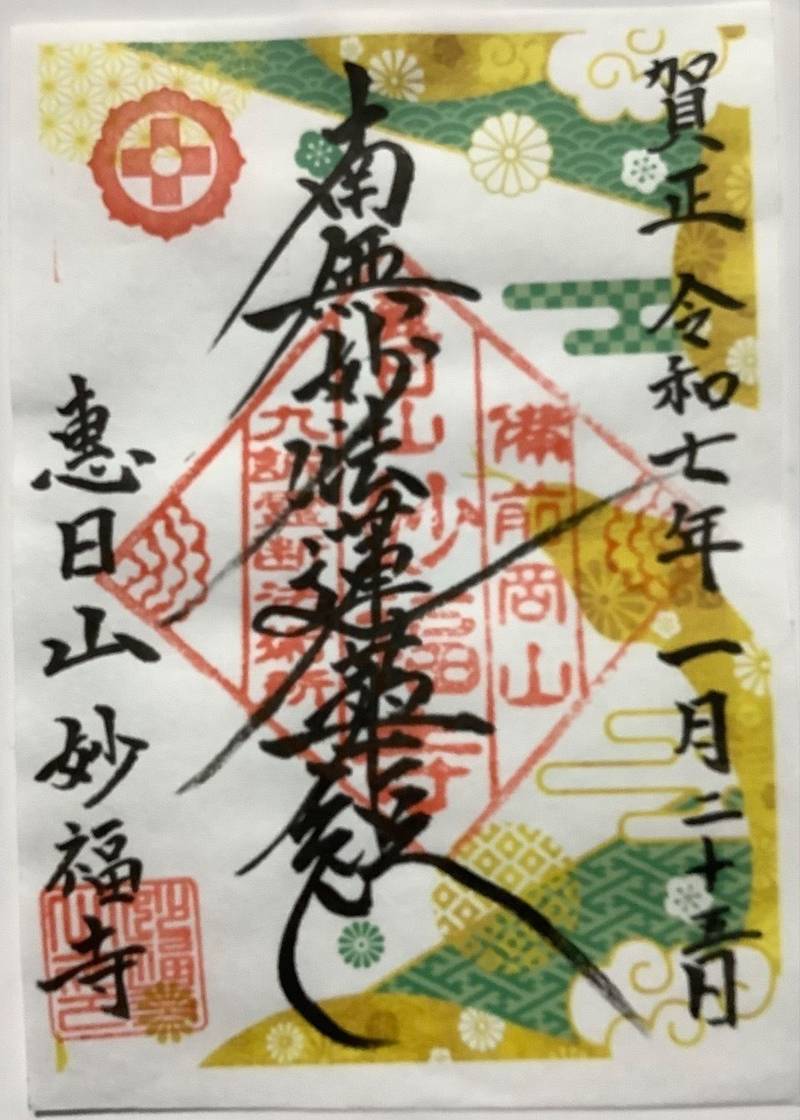 賀正 令和七年 一月二十五日
南無妙法蓮華経
備前岡山
惠日山 妙福寺